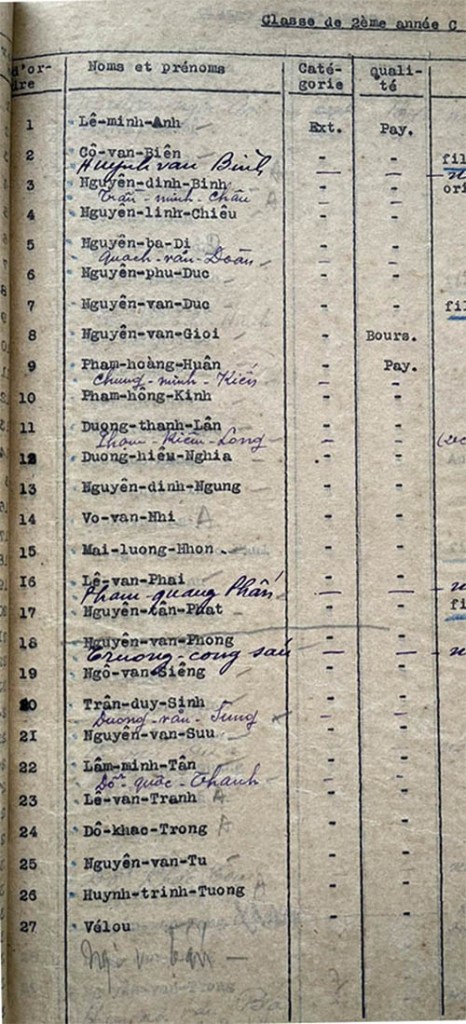 Classe de 2ème année C
d'or-
dre
Noms et prénoms
Caté-
gorie
quali-
té
1 Lê-minh-Anh Ext. Pay.
2 Cô-van-Biên - - fil
Huynh van Binh — — - n
3 Nguyên-dinh-Binh - - ori
Trân-minh-Châu - -
4 Nguyen-linh-Chiêu - -
5 Nguyên-ba-Di - -
Quach-van-Doan - -
6 Nguyên-phu-Duc - -
7 Nguyên-van-Duc - - fil
8 Nguyên-van-Gioi - Bours.
9 Pham-hoàng-Huân - Pay.
Chung-minh-Kiên -
10 Pham-hông-Kinh - -
11 Duong-thanh-Lân - -
Pham-Kiêm-Long - -
12 Duong-hiêu-Nghia - -
13 Nguyên-dinh-Ngung - -
14 Vo-van-Nhi A - -
15 Mai-luong-Nhon - -
16 Lê-van-Phai - -
Pham-quang-Phân — — - n
17 Nguyên-tân-Phat - - fi
18 Nguyên-van-Phong - -
Truong-cong-sau — — - n
19 Ngô-van-Siêng - -
20 Trân-duy-Sinh - -
Duong-van-Sung - -
21 Nguyên-van-Suu - -
22 Lâm-minh-Tân - -
Dô-quôc-Thanh - -
23 Lê-van-Tranh A - -
24 Dô-khac-Trong A - -
25 Nguyên-van-Tu - -
26 Huynh-trinh-Tuong - -
27 Vélou - -